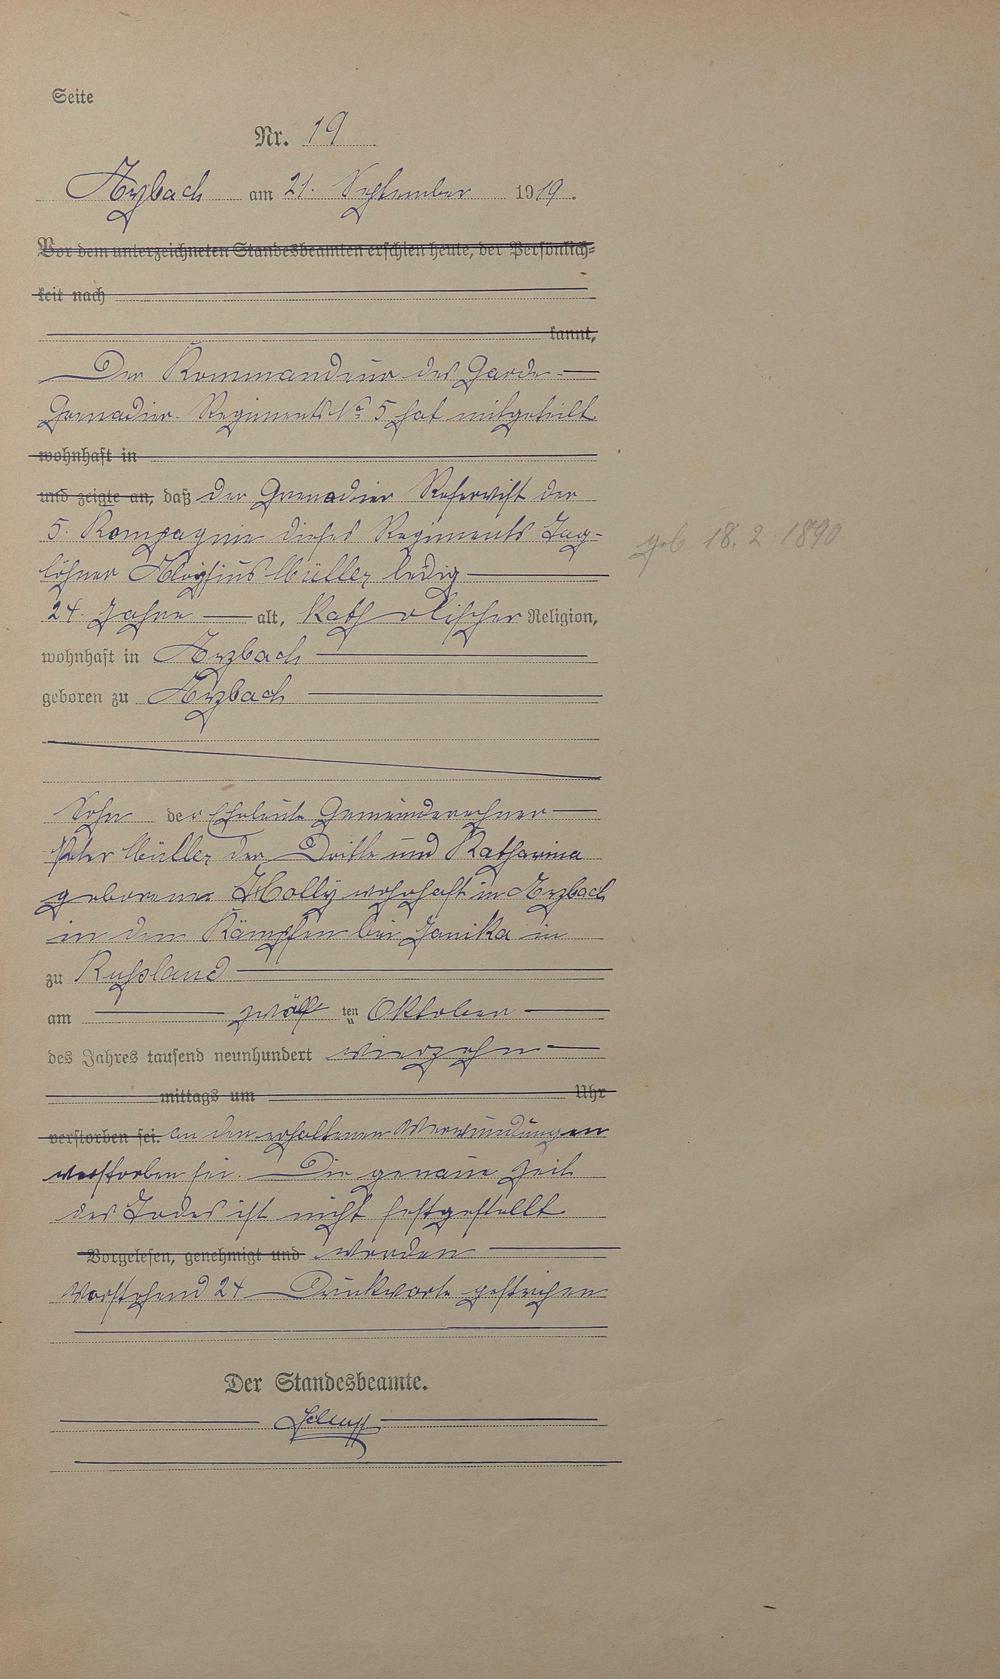 Seite
Nr. 19
Arzbach am 21. September 1919.
Vor dem unterzeichneten Standesbeamten erschien heute, der Persönlich-
keit nach
kannt,
Der Kommandeur des Garde-
Grenadier-Regiments No 5 hat mitgeteilt
wohnhaft in
und zeigte an, daß der Grenadier Reservist der
5. Kompagnie dieses Regiments Tag-
löhner Aloysius Müller ledig
24 Jahre alt, Katholischer Religion,
wohnhaft in Arzbach
geboren zu Arzbach
geb 18. 2 1890
Sohn der Eheleute Gemeinderechner
Peter Müller der Dritte und Katharina
geborene Holly wohnhaft in Arzbach
in den Kämpfen bei in
zu Rußland
am zwölf ten Oktober
des Jahres tausend neunhundert vierzehn
mittags um Uhr
verstorben sei. an den erhaltenen Verwundungen
verstorben sei. Die genaue Zeit
des Todes ist nicht festgestellt
Vorgelesen, genehmigt und worden
Vorstehend 24 Druckworte gestrichen
Der Standesbeamte.